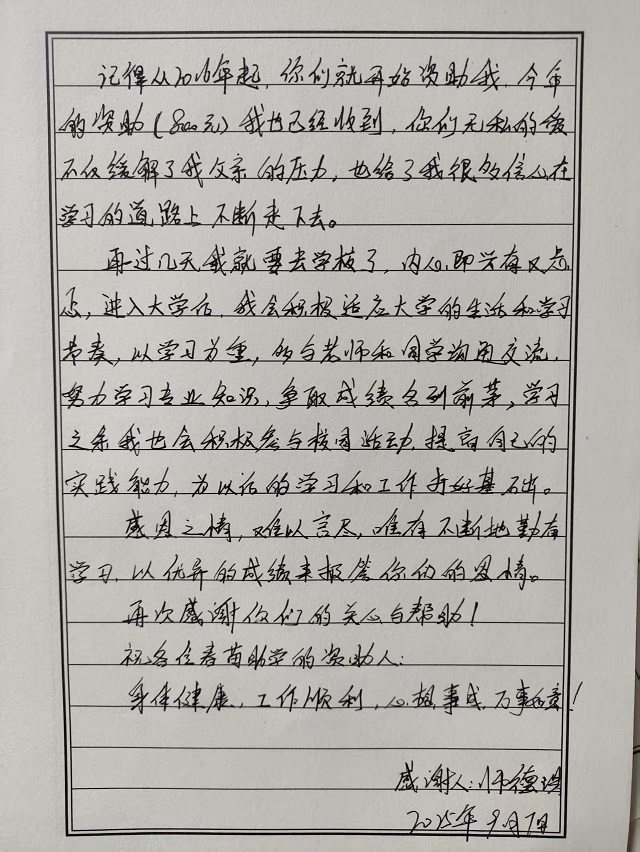 记得从2016年起，你们就开始资助我，今年
的资助（800元）我也已经收到，你们无私的爱
不仅缓解了我父亲的压力，也给了我很多信心在
学习的道路上不断走下去。
再过几天我就要去学校了，内心即兴奋又忐
忑，进入大学后，我会积极适应大学的生活和学习
节奏，以学习为重，多与老师和同学沟通交流，
努力学习专业知识，争取成绩名列前茅，学习
之余我也会积极参与校园活动，提高自己的
实践能力，为以后的学习和工作打好基础。
感恩之情，难以言尽，唯有不断地勤奋
学习，以优异的成绩来报答你们的恩情。
再次感谢你们的关心与帮助！
祝各位春苗助学的资助人：
身体健康，工作顺利，心想事成，万事如意！
感谢人：德
2025年9月7日